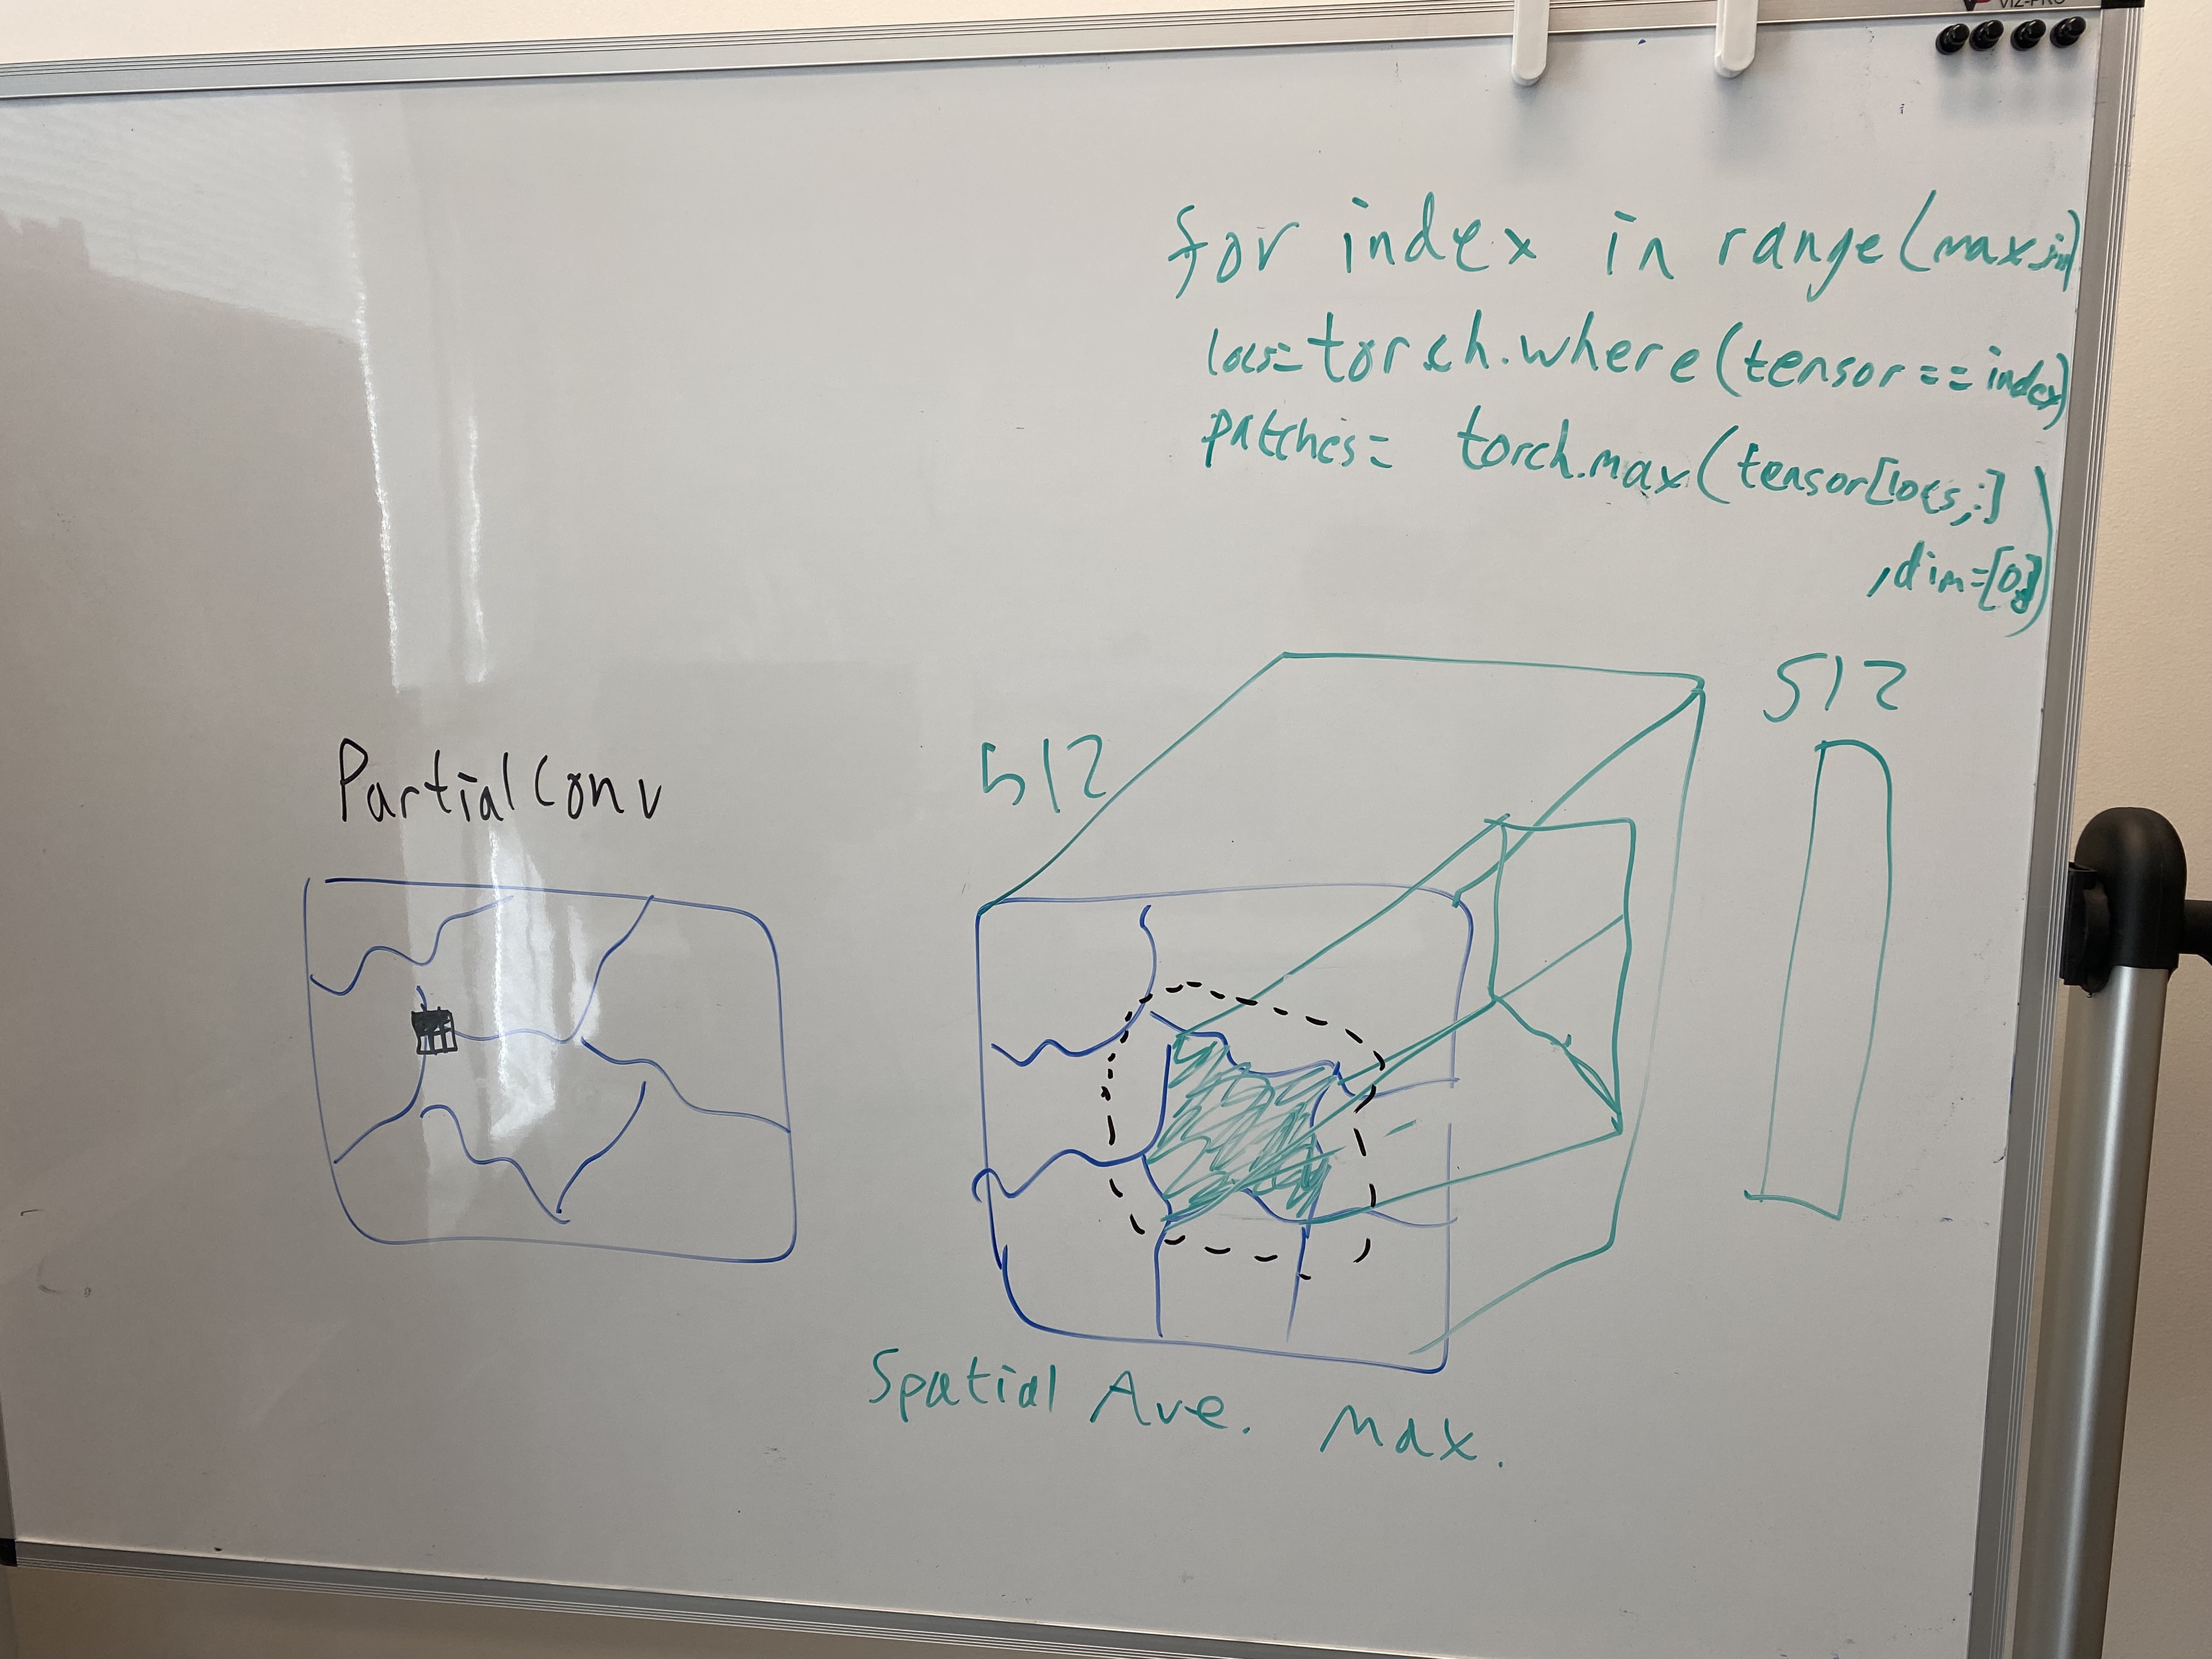 VIZ-PRO
for index in range(max
locs=torch.where(tensor==index)
patches= torch.max(tensor[locs,:]
,dim=[0])
512
512
PartialConv
Spatial Ave. Max.